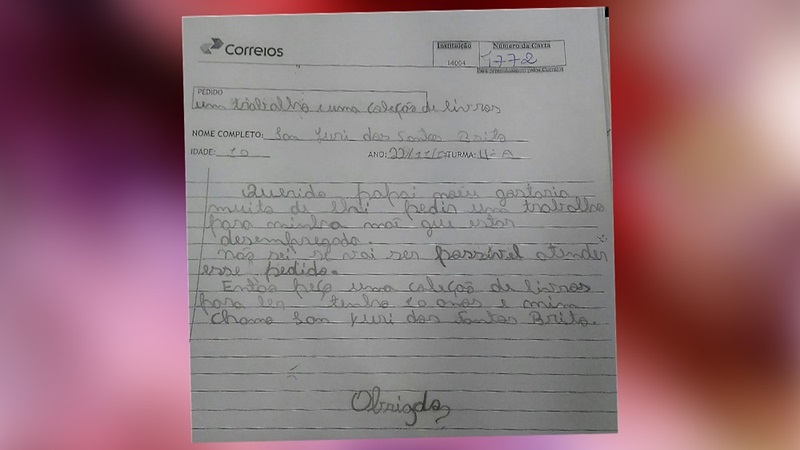 Correios
Instituição Número da Carta
14004 1772
PEDIDO
um trabalho e uma coleção de livros
NOME COMPLETO: Yuri dos Santos Brito
IDADE: 10 ANO: TURMA: 4º A
Querido papai noeu gostaria
muito de lhi pedir um trabalho
para minha mãe que estar
desempregada.
não sei se vai ser possível atender
esse pedido.
Então peço uma coleção de livros
para ler tenho 10 anos e mim
chamo Yuri dos Santos Brito.
Obrigado